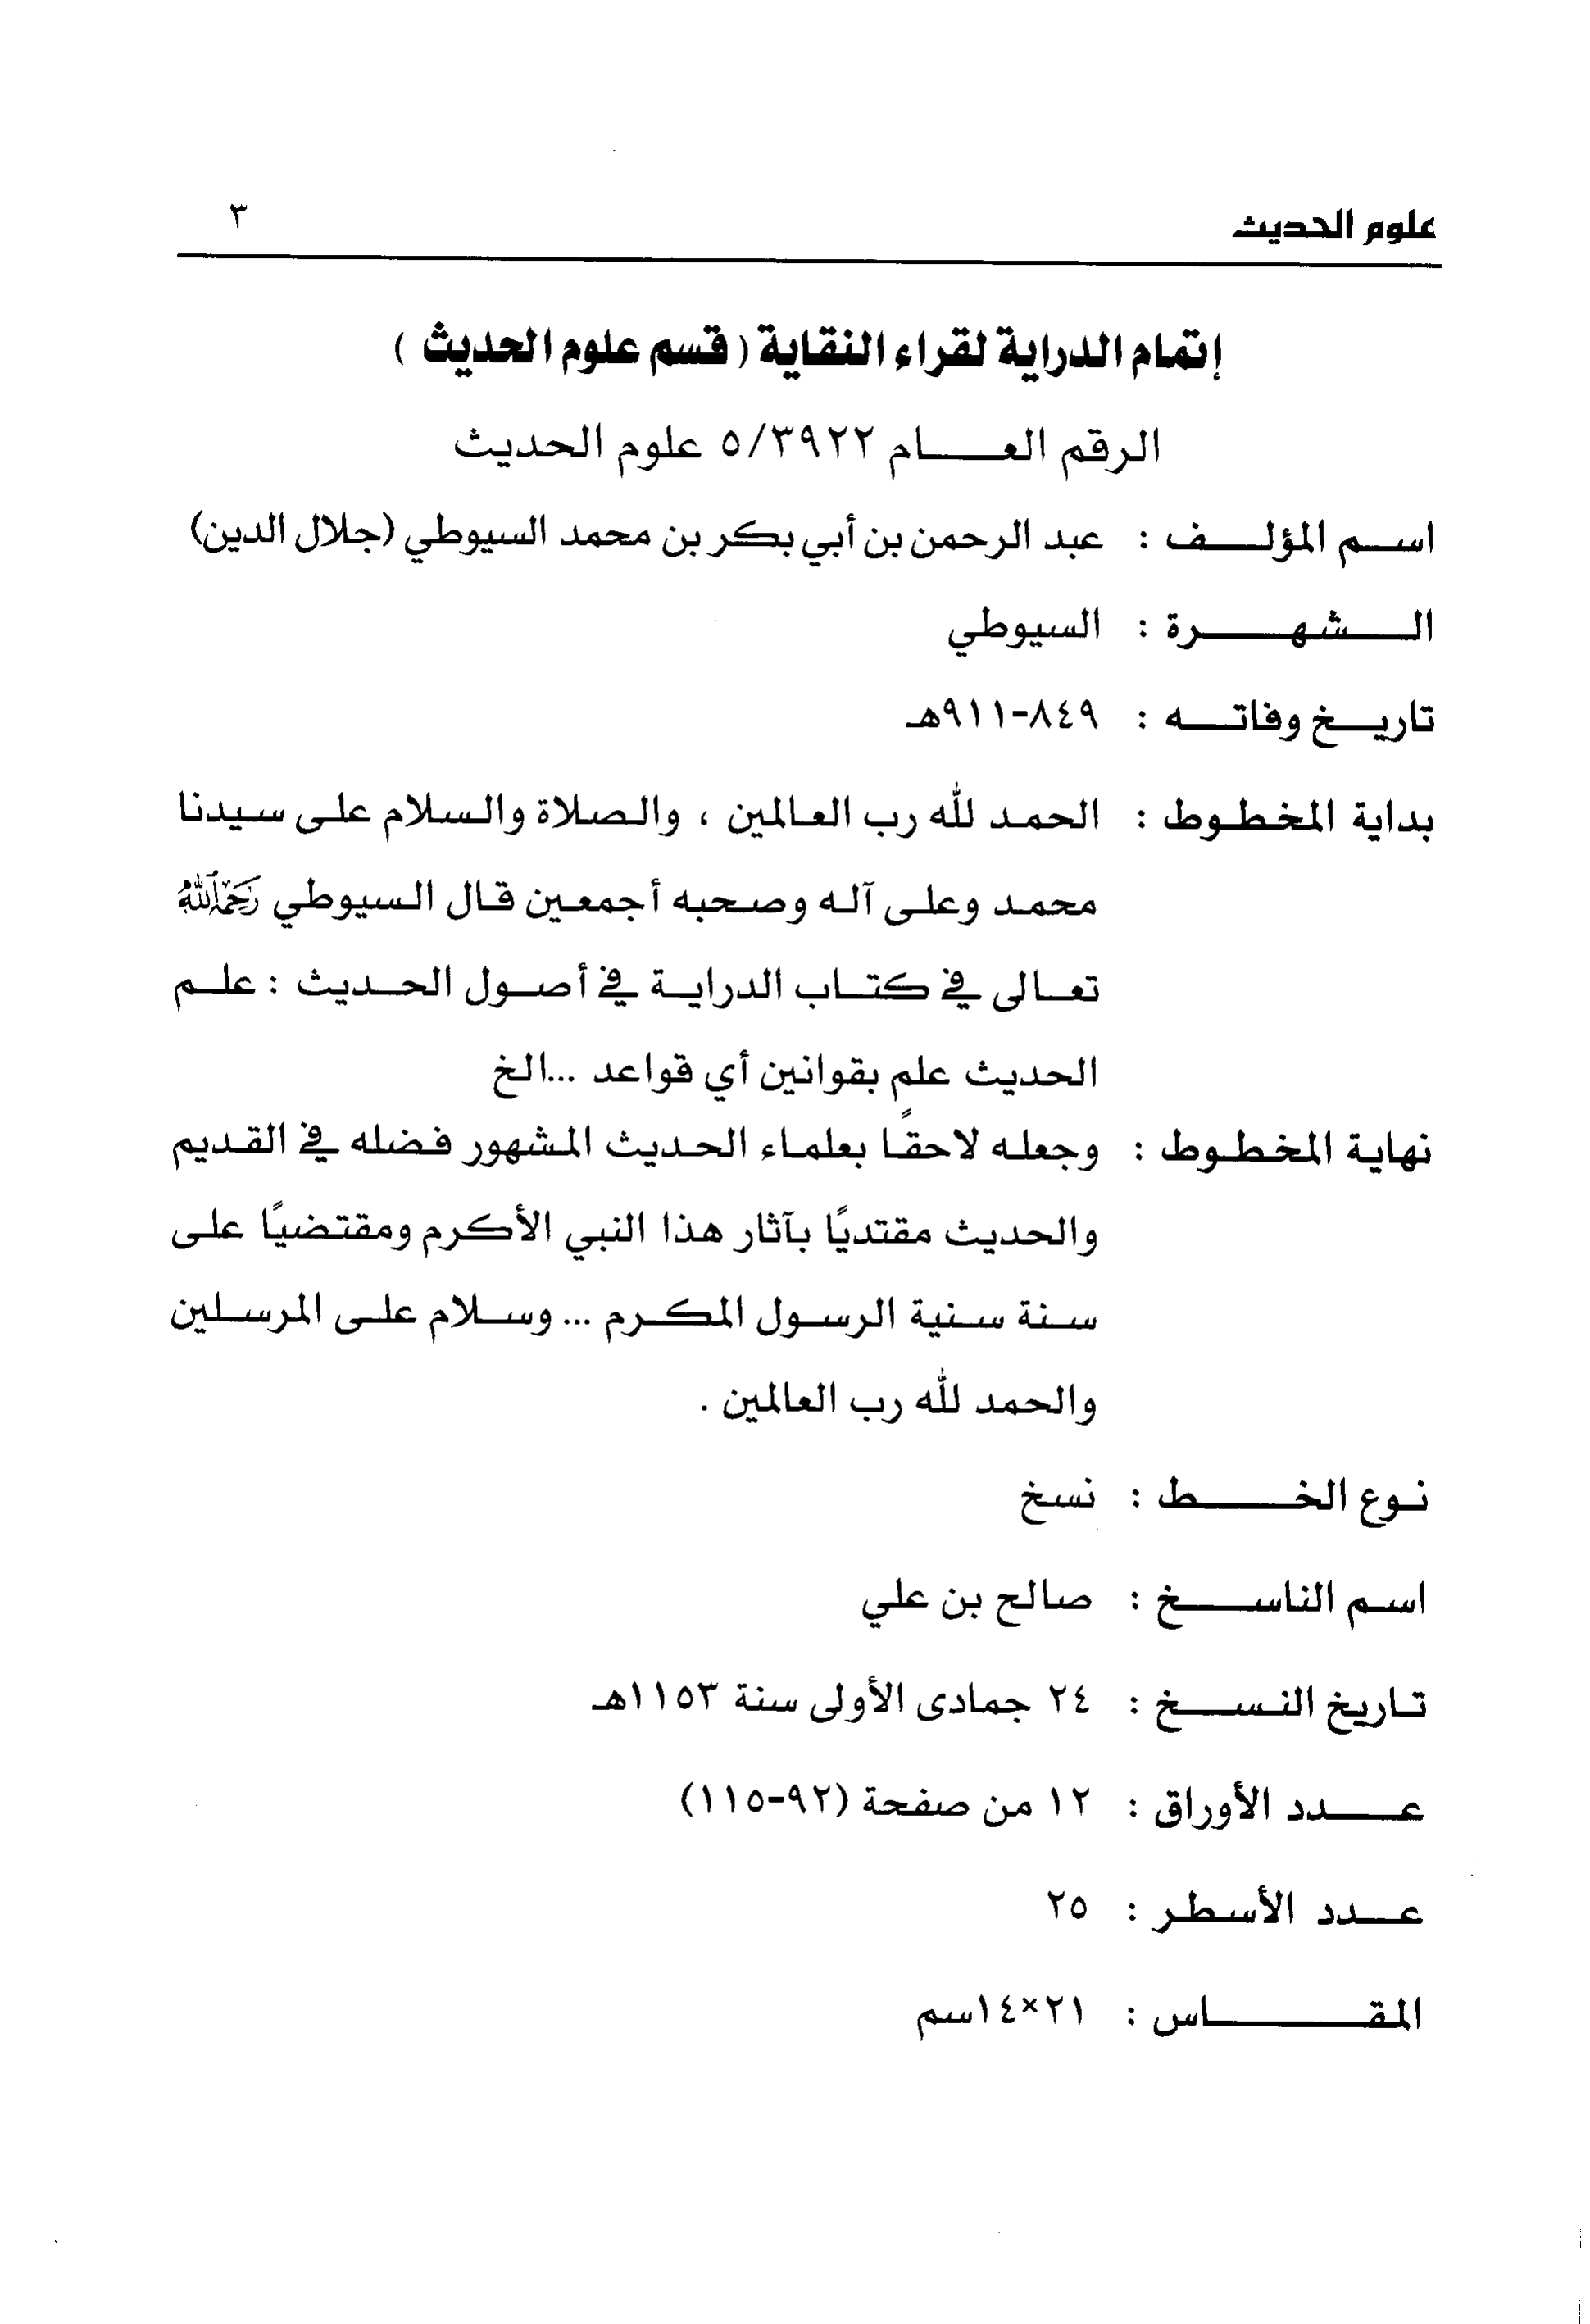 علوم الحديث ٣
إتمام الدراية لقراء النقاية (قسم علوم الحديث)
الرقم العام ٥/٣٩٢٢ علوم الحديث
اسم المؤلف : عبد الرحمن بن أبي بكر بن محمد السيوطي (جلال الدين)
الشهرة : السيوطي
تاريخ وفاته : ٨٤٩-٩١١هـ
بداية المخطوط : الحمد لله رب العالمين ، والصلاة والسلام على سيدنا
محمد وعلى آله وصحبه أجمعين قال السيوطي رحمه الله
تعالى في كتاب الدراية في أصول الحديث : علم
الحديث علم بقوانين أي قواعد ...الخ
نهاية المخطوط : وجعله لاحقًا بعلماء الحديث المشهور فضله في القديم
والحديث مقتديًا بآثار هذا النبي الأكرم ومقتضيًا على
سنة سنية الرسول المكرم ... وسلام على المرسلين
والحمد لله رب العالمين .
نوع الخط : نسخ
اسم الناسخ : صالح بن علي
تاريخ النسخ : ٢٤ جمادى الأولى سنة ١١٥٣هـ
عدد الأوراق : ١٢ من صفحة (٩٢-١١٥)
عدد الأسطر : ٢٥
المقاس : ٢١×١٤سم